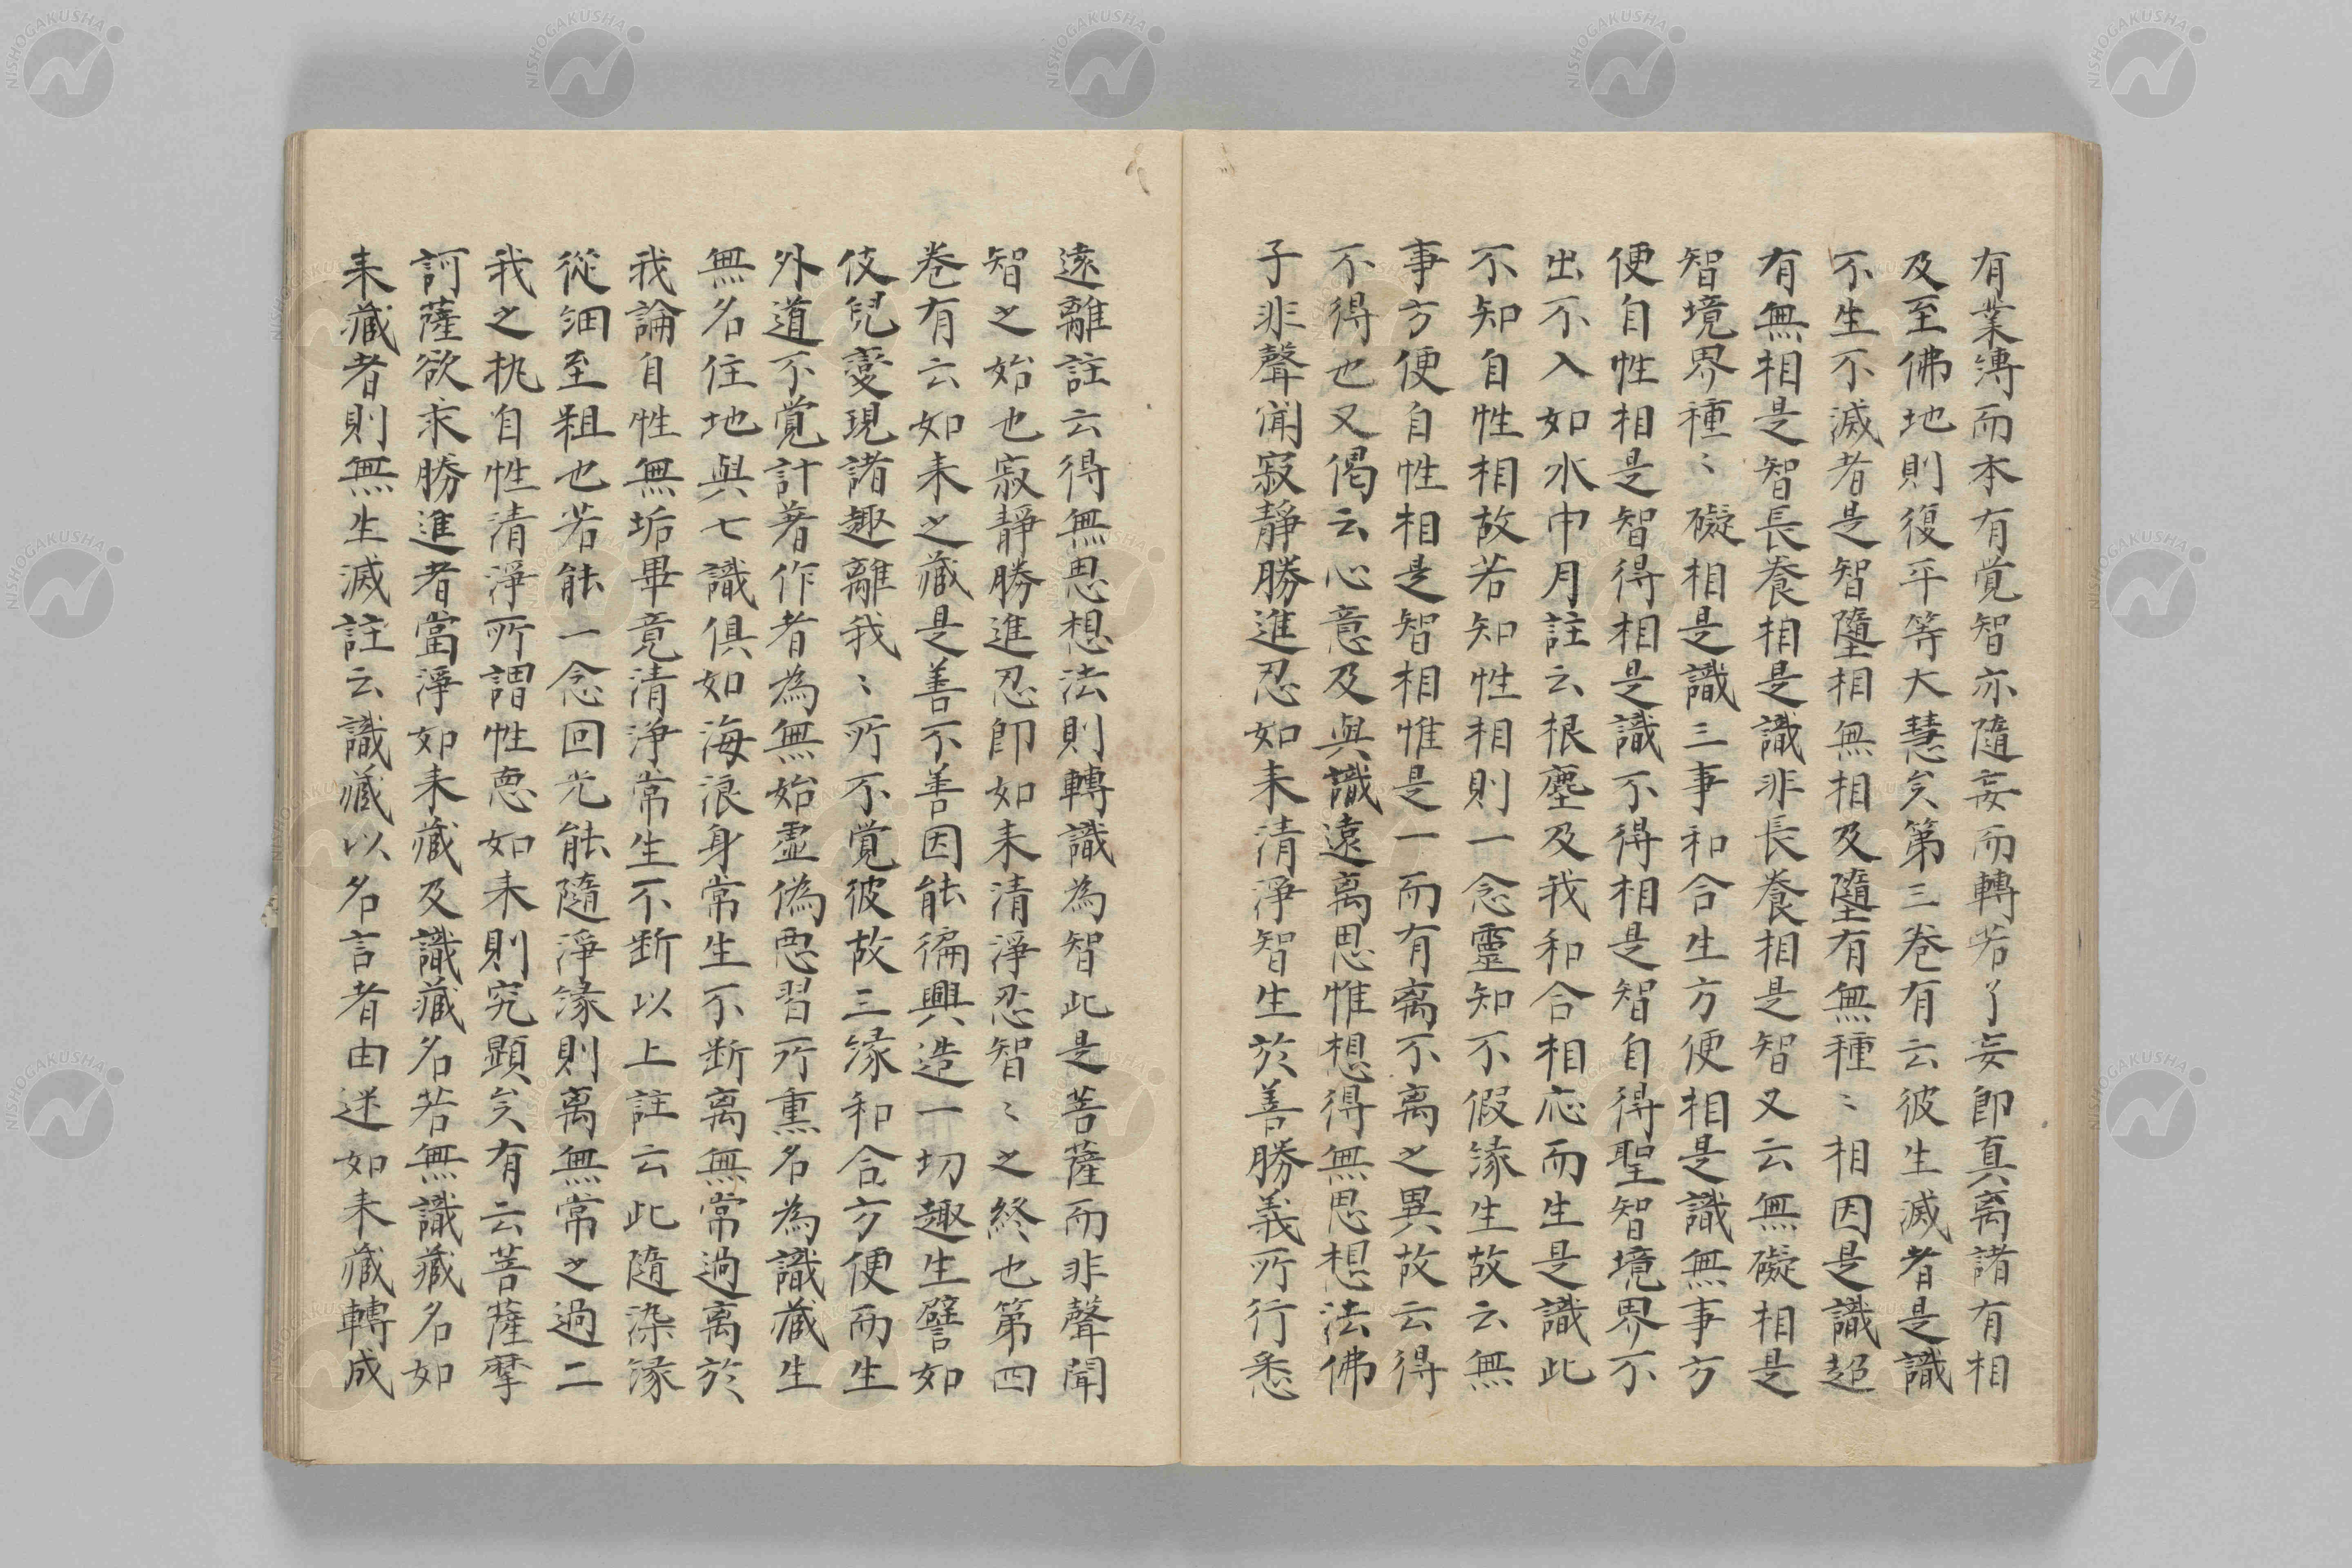 有業溥而本有覚智亦隨妄而轉若了妄即真离諸有相
及至佛地則復平等大慧矣第三卷有云彼生滅者是識
不生不滅者是智墮相無相及墮有無種〻相因是識超
有無相是智長養相是識非長養相是智又云無礙相是
智境界種〻礙相是識三事和合生方便相是識無事方
便自性相是智得相是識不得相是智自得聖智境界不
出不入如水中月註云根塵及我和合相応而生是識此
不知自性相故若知性相則一念靈知不假縁生故云無
事方便自性相是智相惟是一而有离不离之異故云得
不得也又偈云心意及與識遠离思惟想得無思想法佛
子非聲聞寂静勝進忍如来清淨智生於善勝義所行悉
遠離註云得無思想法則轉識為智此是菩薩而非聲聞
智之始也寂静勝進忍即如来清淨忍智〻之終也第四
卷有云如来之藏是善不善因能徧興造一切趣生譬如
伎兒変現諸趣離我〻所不覚彼故三縁和合方便而生
外道不覚計著作者為無始虚偽悪習所熏名為識藏生
無名住地與七識俱如海浪身常生不断离無常過离於
我論自性無垢畢竟清淨常生不断以上註云此隨染縁
從細至粗也若能一念回光能隨淨縁則离無常之過二
我之執自性清淨所謂性悪如来則究顕矣有云菩薩摩
訶薩欲求勝進者當淨如来藏及識藏名若無識藏名如
来藏者則無生滅註云識藏以名言者由迷如来藏轉成